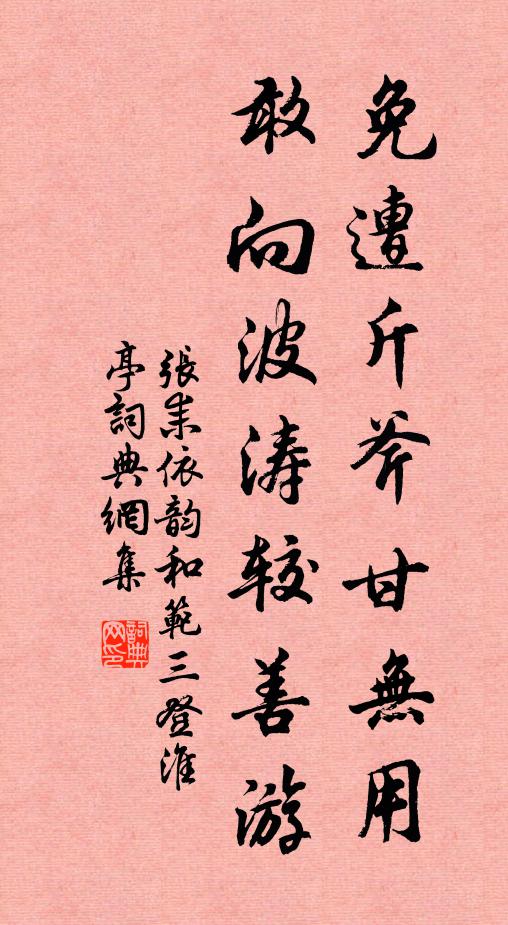 免遭斤斧甘無用
敢向波涛较善游
張耒依韵和範三登淮
亭詞典網集
詞典
网印